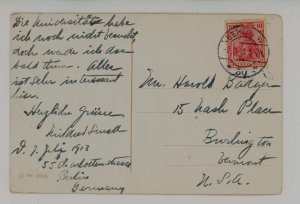 Die Universität habe
ich noch nicht besucht,
doch werde ich das
bald thun. Alles
ist sehr interessant
hier.
Herzliche Grüsse
D. 1 July 1913
55 Charlottenstrasse
Berlin
Germany
Mr. Harold Badger
15 Nash Place
Burlington
Vermont
U.S.A.
10